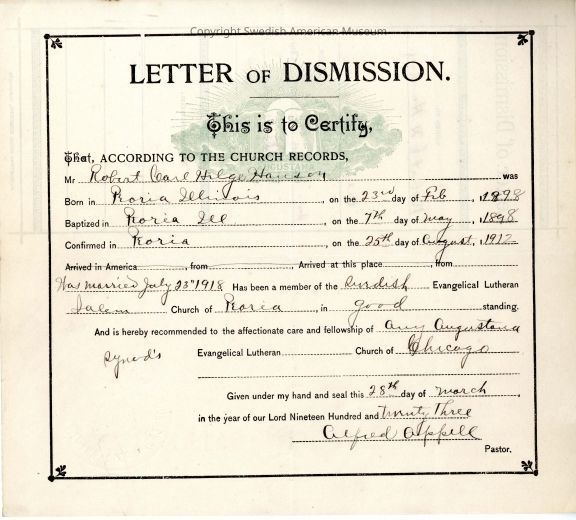 Copyright Swedish American Museum
LETTER OF DISMISSION.
This is to Certify,
That, ACCORDING TO THE CHURCH RECORDS,
Mr Robert Carl Helge Hanson was
Born in Peoria Illinois, on the 23rd day of Feb, 1898
Baptized in Peoria Ill, on the 7th day of May, 1898
Confirmed in Peoria, on the 25th day of August, 1912
Arrived in America, from Arrived at this place, from
Was married July 23" 1918 Has been a member of the Swedish Evangelical Lutheran
Salem Church of Peoria, in good standing.
And is hereby recommended to the affectionate care and fellowship of any Augustana
synod's Evangelical Lutheran Church of Chicago
Given under my hand and seal this 28th day of March,
in the year of our Lord Nineteen Hundred and twenty Three
Alfred Appell
Pastor.